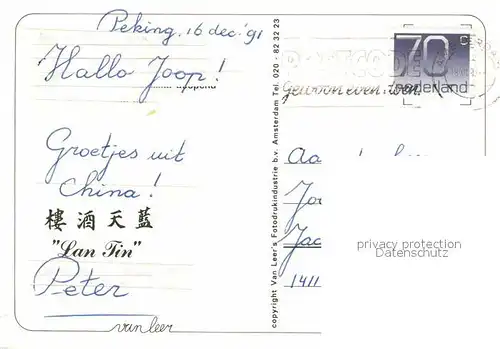 Peking, 16 dec. '91
Hallo Joop!
geopend
Groetjes uit
China!
樓酒天藍
"Lan Tin"
Peter
van leer
copyright Van Leer's Fotodrukindustrie b.v. Amsterdam Tel. 020 - 82 32 23
70 c
POSTCODE
nederland
gewoon even doen
Aa
Joo
Jac
1411
privacy protection
Datenschutz